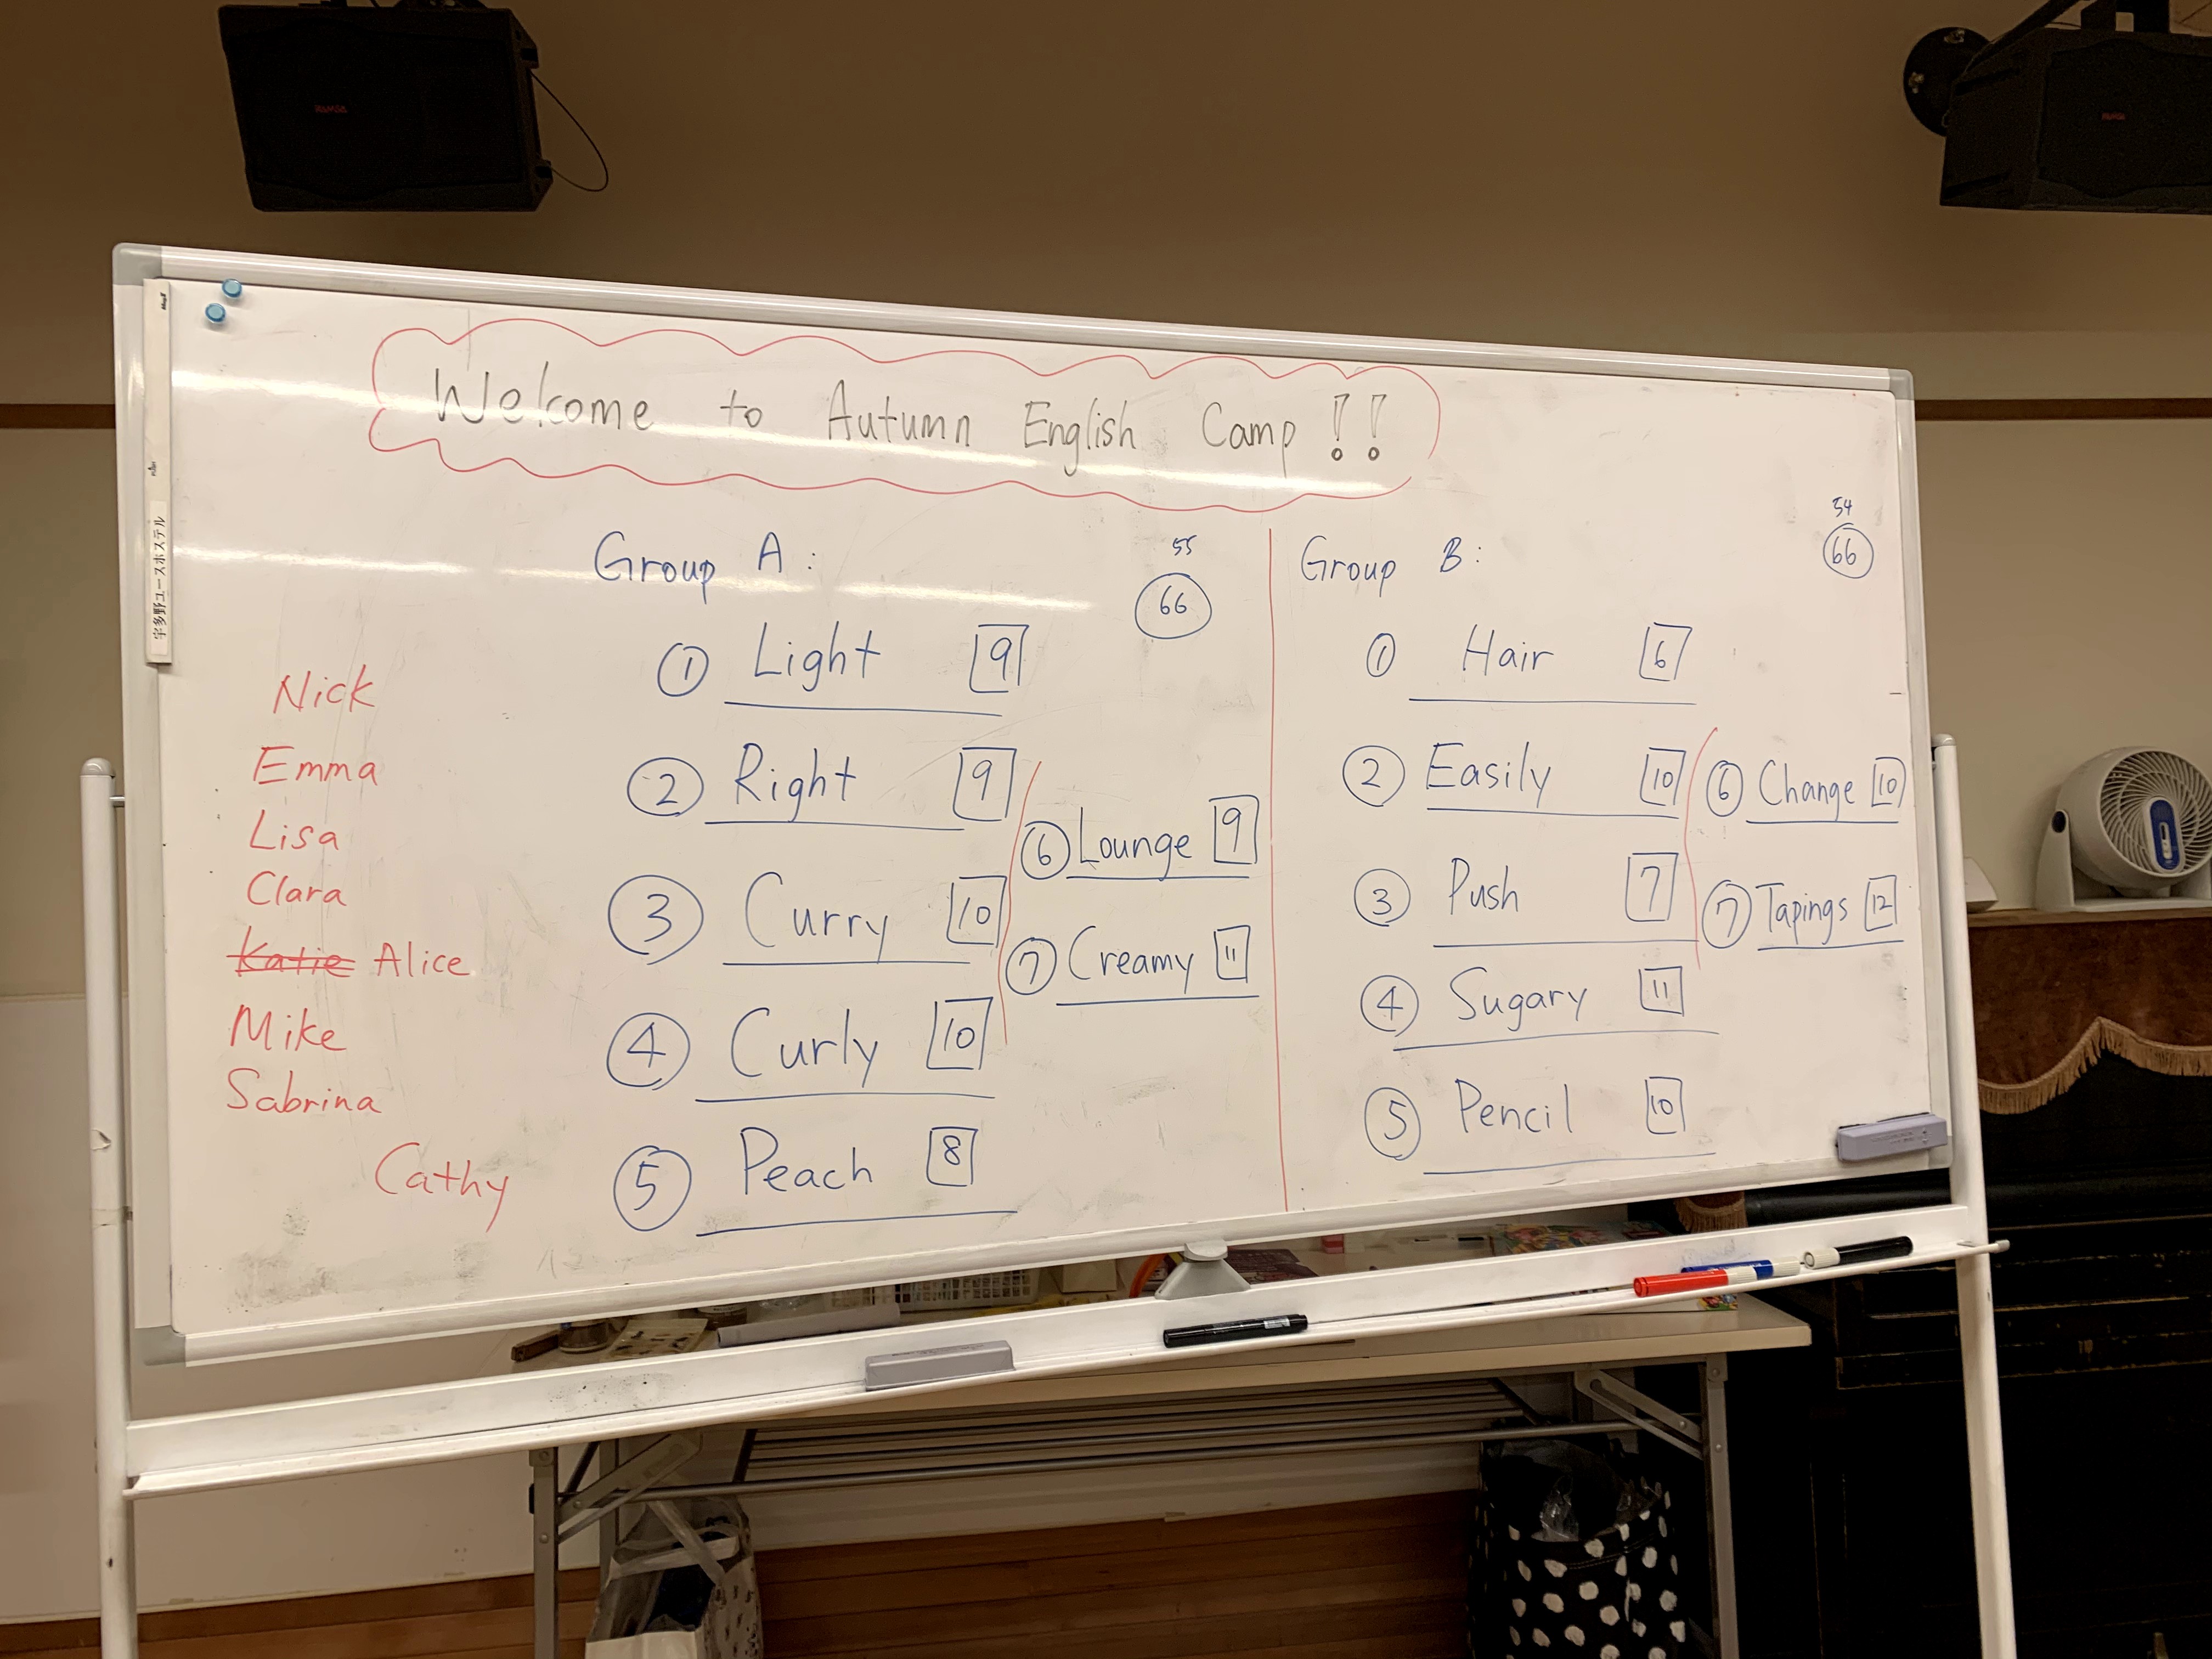 Welcome to Autumn English Camp!!
Group A:
55
66
① Light 9
② Right 9
③ Curry 10
④ Curly 10
⑤ Peach 8
⑥ Lounge 9
⑦ Creamy 11
Group B:
54
66
① Hair 6
② Easily 10
③ Push 7
④ Sugary 11
⑤ Pencil 10
⑥ Change 10
⑦ Tapings 12
Nick
Emma
Lisa
Clara
Katie Alice
Mike
Sabrina
Cathy
宇多野ユースホステル
RAMSA